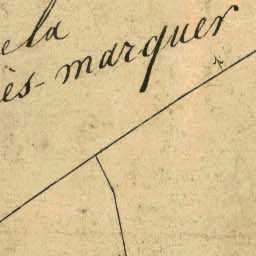 ela
ès-marquer